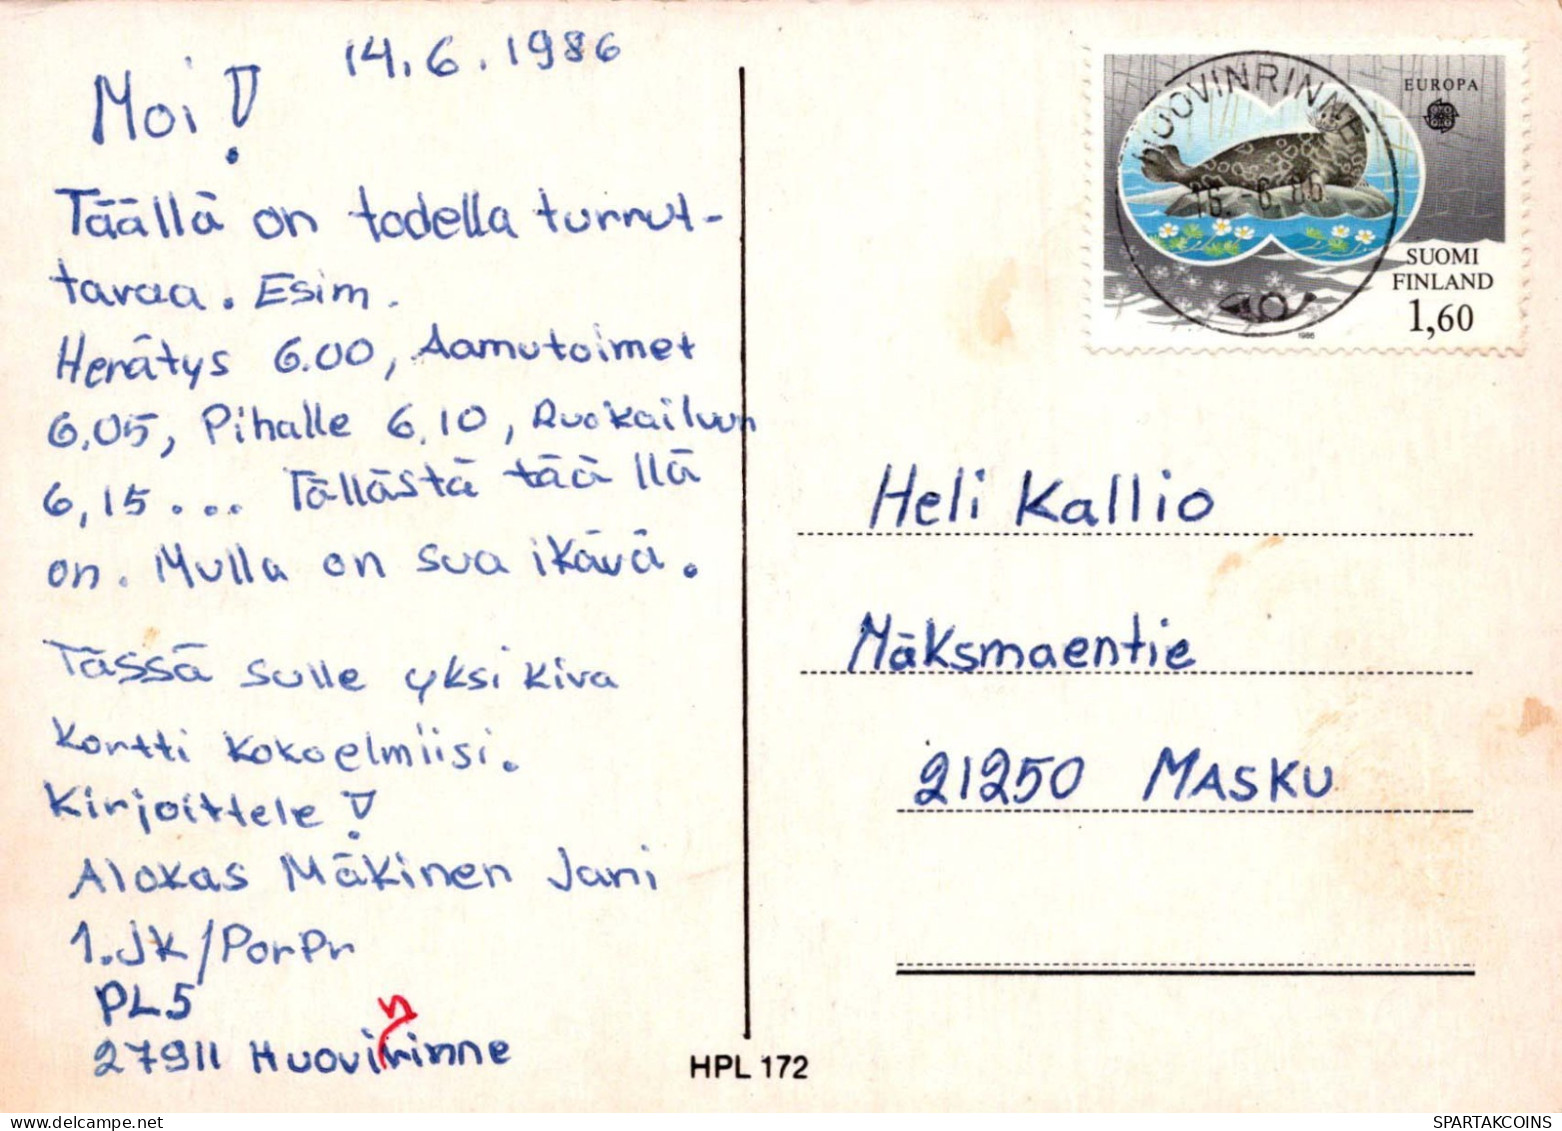 14.6.1986
Moi!
Täällä on todella turrut-
tavaa. Esim.
Herätys 6.00, Aamutoimet
6.05, Pihalle 6.10, Ruokailuun
6,15... Tällästä täällä
on. Mulla on sua ikävä.
Tässä sulle yksi kiva
kortti kokoelmiisi.
Kirjoittele!
Alokas Mäkinen Jani
1.JK/PorPr
PL5
n
27911 Huovirinne
HPL 172
HUOVINRINNE
16.-6.86
EUROPA
SUOMI
FINLAND
1,60
1986
Heli Kallio
Mäksmaentie
21250 MASKU
SPARTAKCOINS